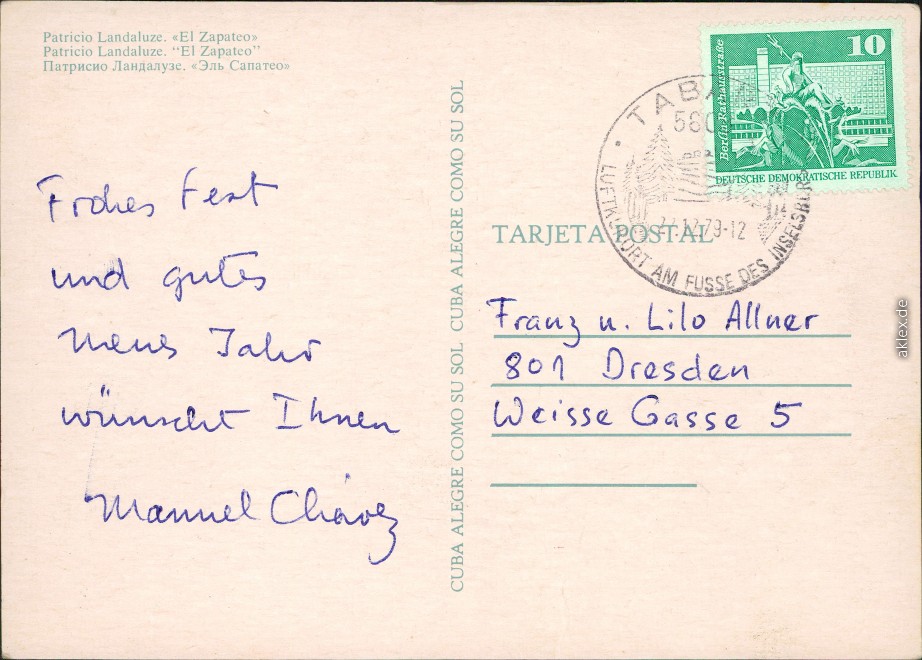 Patricio Landaluze. «El Zapateo»
Patricio Landaluze. “El Zapateo”
Патрисио Ландалузе. «Эль Сапатео»
Frohes Fest
und gutes
neues Jahr
wünscht Ihnen
Manuel Chávez
CUBA ALEGRE COMO SU SOL CUBA ALEGRE COMO SU SOL CUBA ALEGRE COMO SU SOL
10
Berlin·Rathausstraße
DEUTSCHE DEMOKRATISCHE REPUBLIK
LUFTKURORT AM FUSSE DES INSELSBERG
TARJETA POSTAL
Franz u. Lilo Allner
801 Dresden
Weisse Gasse 5
aklex.de